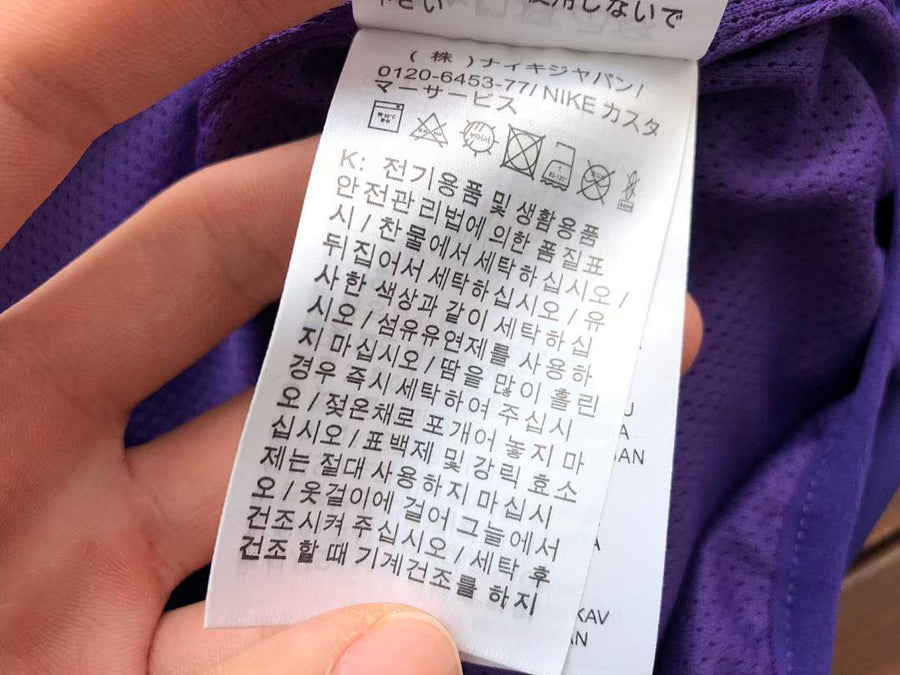 使用しないで
下さい
(株)ナイキジャパン/
0120-6453-77/ NIKE カスタ
マーサービス
K: 전기용품 및 생활용품
안전관리법에 의한 품질표
시 / 찬물에서 세탁하십시오 /
뒤집어서 세탁하십시오 / 유
사한 색상과 같이 세탁하십
시오 / 섬유유연제를 사용하
지 마십시오 / 땀을 많이 흘린
경우 즉시세탁하여 주십시
오 / 젖은채로 포개어 놓지 마
십시오 / 표백제 및 강력 효소
제는 절대 사용하지 마십시
오 / 옷걸이에 걸어 그늘에서
건조시켜 주십시오 / 세탁 후
건조 할 때 기계건조를 하지
U
A
AN
A
KAV
N